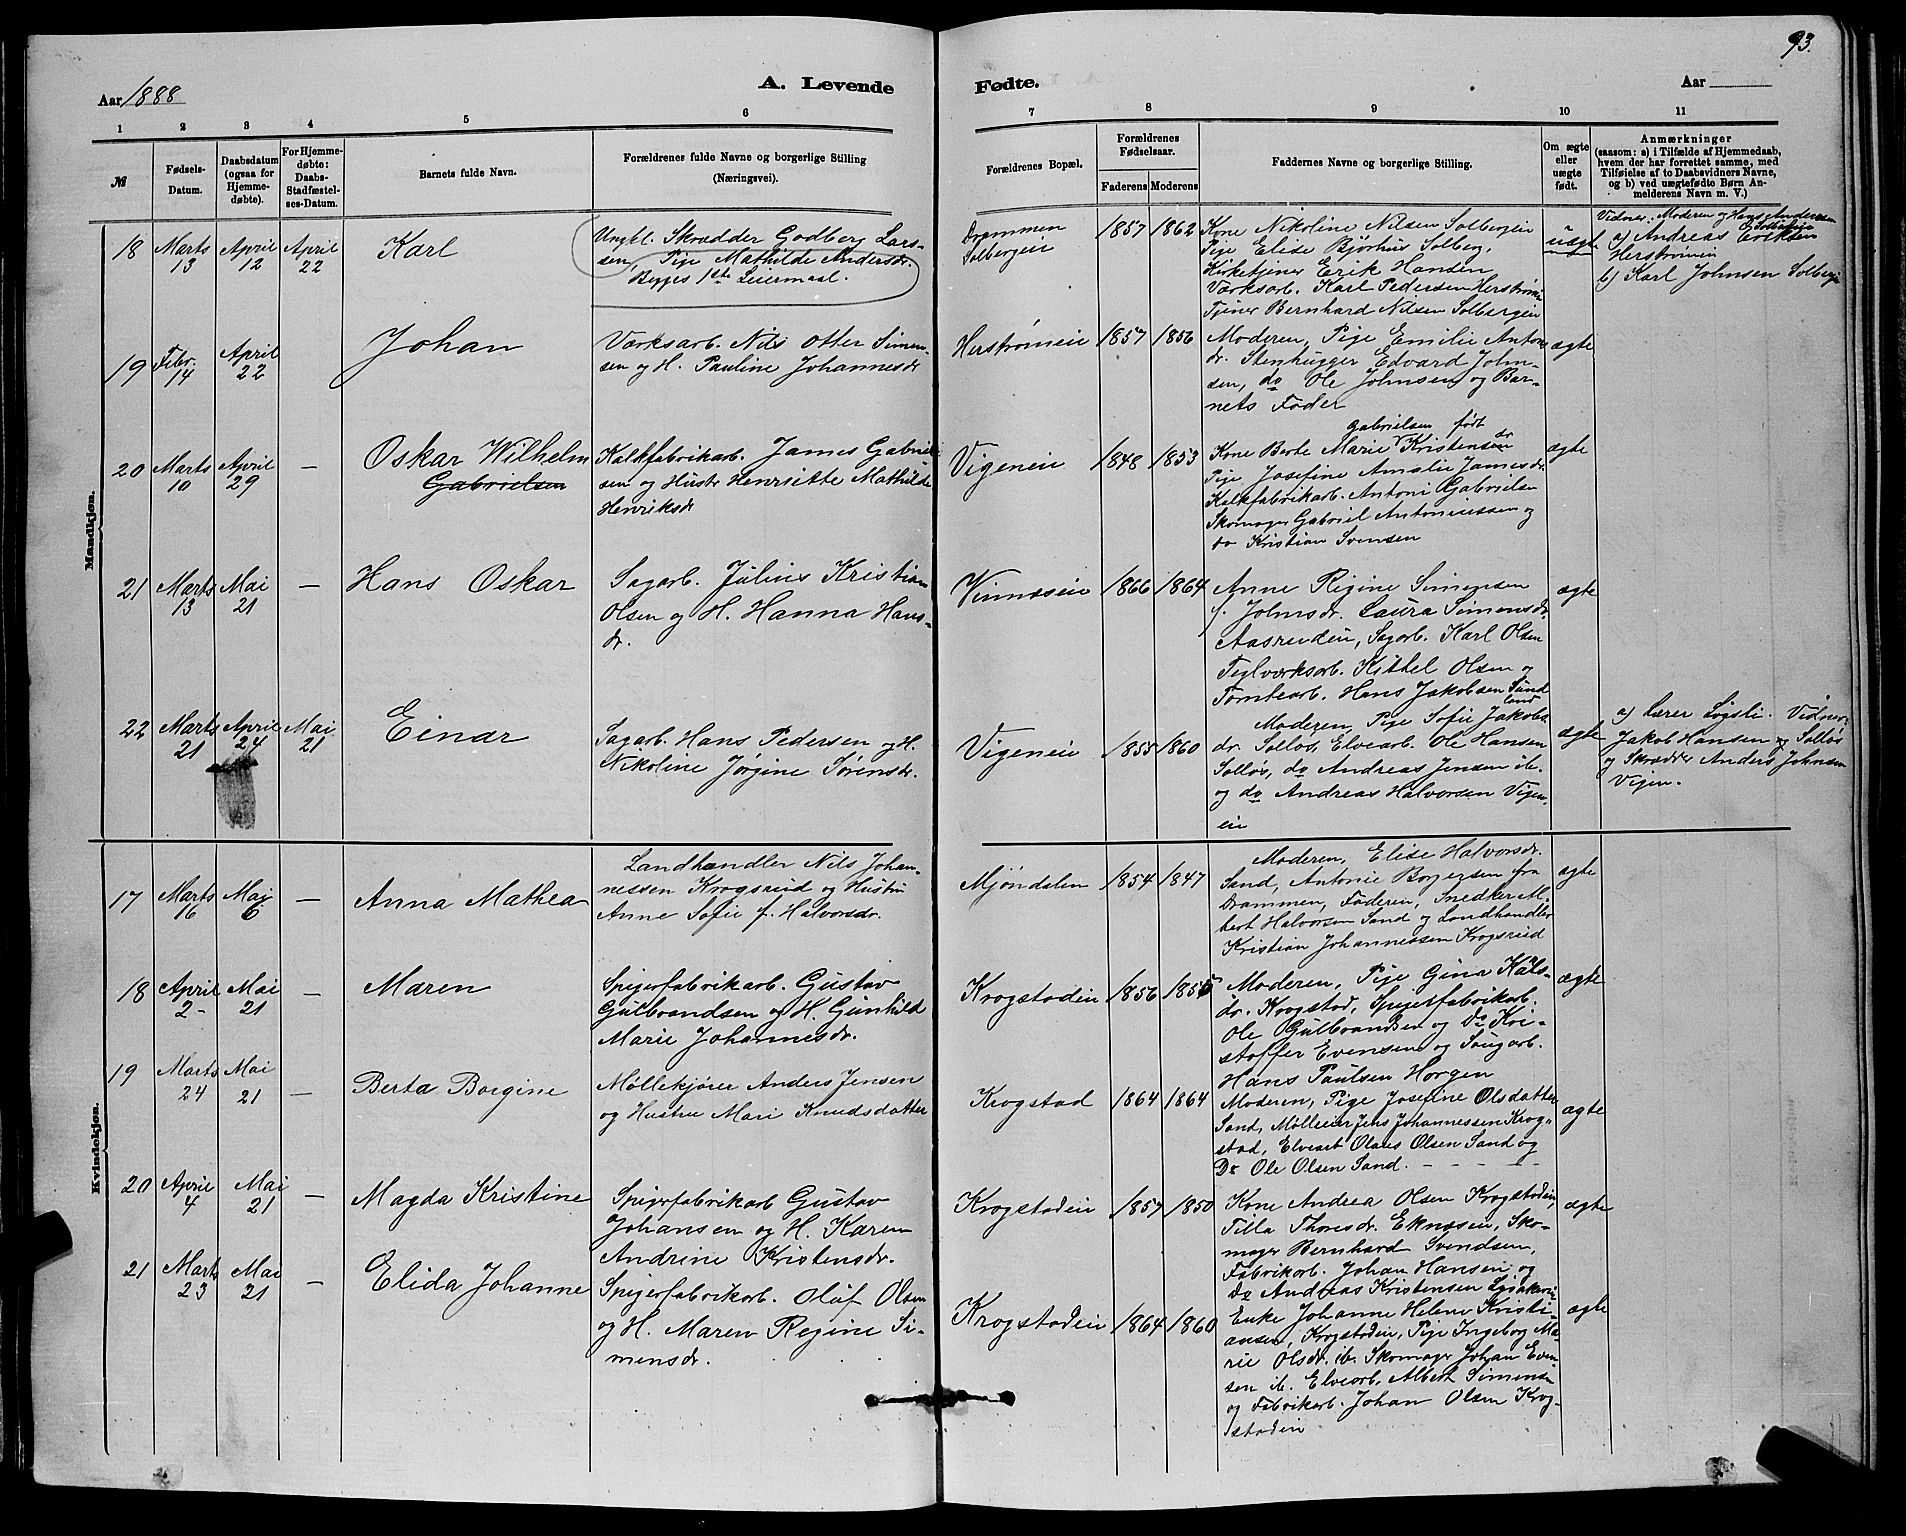 93.
Aar 1888
A. Levende
Fødte.
Aar
1 2 3 4 5 6 7 8 9 10 11
№
Fødsels-Datum.
Daabsdatum (ogsaa for Hjemme-døbte).
For Hjemme-døbte: Daabs-Stadfæstel-ses-Datum.
Barnets fulde Navn.
Forældrenes fulde Navne og borgerlige Stilling
(Næringsvei).
Forældrenes Bopæl.
Forældrenes Fødselsaar.
Faderens Moderens
Faddernes Navne og borgerlige Stilling.
Om ægte eller uægte født.
Anmærkninger
(saasom: a) i Tilfælde af Hjemmedaab,
hvem der har forrettet samme, med
Tilføielse af to Daabsvidners Navne,
og b) ved uægtefødte Børn An-
melderens Navn m. V.)
Mandkjøn.
18 Marts 13 April 12 April 22 Karl
Ungkl. Skrædder Godberg Lars-
sen, Pige Mathilde Andersdr.
Begges 1ste Leiermaal.
Drammen
Solbergeie
1857 1862
Kone Nikoline Nilsen Solbergeie
Pige Elise Bjørhus Solberg,
Kirketjener Erik Hansen
Værksarb. Karl Pedersen Herstrømei
Tjener Bernhard Nilsen Solbergeie
uægte
Vidner: Moderen og Hans Andersen
Solbergeie
a) Andreas Eriksen
Herstrømeie
b) Karl Johnsen Solbergei
19 Febr. 14 April 22 Johan
Værksarb. Nils Otter Simen-
sen og H. Pauline Johannesdr
Herstrømeie 1857 1856
Moderen, Pige Emilie Anton
dr. Stenhugger Edvard John-
sen, do Ole Johnsen og Bar-
nets Fader
ægte
20 Marts 10 April 29 – Oskar Wilhelm
Gabrielsen
Kalkfabrikarb. James Gabriel
sen og Hustr Henriette Mathilde
Henriksdr
Vigeneie 1848 1853
Gabrielsen født
Kone Berte Marie Kristensen dr
Pige Josefine Amalie Jamesdr.
Kalkfabrikarb. Antoni Gabrielsen
Skomager Gabriel Antoniussen og
do Kristian Svensen
ægte
21 Marts 13 Mai 21 – Hans Oskar
Sagarb. Julius Kristian
Olsen og H. Hanna Hans-
dr.
Vinnæseie 1866 1864
Anne Rigine Simensen
f. Johnsdr. Laura Simensdr.
Aasrudeie, Sagarb. Karl Olsen
Teglværksarb. Kittel Olsen og
Tomtearb. Hans Jakobsen Sund
land
ægte
22 Marts 21 April 24 Mai 21 Einar
Sagarb. Hans Pedersen og H.
Nikoline Jørgine Sørensdr.
Vigeneie 1855 1860
Moderen, Pige Sofie Jakobs
dr. Solløs, Elvearb. Ole Hansen
Solløs, do Andreas Jensen ib.
og do Andreas Halvorsen Vigen-
eie
ægte
a) Lærer Løgsli. Vidner:
Jakob Hansen og Solløs
og Skrædder Anders Johnsen
Vigen.
Kvindekjøn.
17 Marts 16 Mai 6 – Anna Mathea
Landhandler Nils Johan-
nessen Krogsrud og Hustru
Anne Sofie f. Halvorsdr.
Mjøndalen 1854 1847
Moderen, Elise Halvorsdr.
Sand, Antonie Borgersen fra
Drammen, Faderen, Snedker Al-
bert Halvorsen Sand og Landhandler
Kristian Johannessen Krogsrud
ægte
18 April 2- Mai 21 – Maren
Spigerfabrikarb. Gustav
Gulbrandsen og H. Gunhild
Marie Johannesdr.
Krogstadeie 1856 1855
Moderen, Pige Gina Kals-
dr. Krogstad, Spigerfabrikarb.
Ole Gulbrandsen og Do Kri-
stoffer Evensen og Saugarb.
Hans Paulsen Horgen
ægte
19 Marts 24 Mai 21 – Berta Borgine
Møllekjører Anders Jensen
og Hustru Mari Knudsdatter
Krogstad 1864 1864
Moderen, Pige Josefine Olsdatter
Sand, Mølleeier Jens Johannessen Krog-
stad, Elvearb Olaus Olsen Sand og
Do Ole Olsen Sand. – – – –
ægte
20 April 4 Mai 21 – Magda Kristine
Spigerfabrikarb Gustav
Johansen og H. Karen
Andrine Kristensdr.
Krogstadeie 1857 1850
Kone Andrea Olsen Krogstadeie,
Tilla Thoresdr. Eknæseie, Sko-
mager Bernhard Svendsen,
Fabrikarb. Johan Hansen og
Do Andreas Kristensen
ægte
21 Marts 23 Mai 21 – Elida Johanne
Spigerfabrikarb. Oluf Olsen
og H. Maren Regine Si-
mensdr.
Krogstadeie 1864 1860
Enke Johanne Helene Kristi-
ansen, Krogstadeie, Pige Ingeborg Ma-
rie Olsdr. ib. Skomager Johan Even-
sen ib. Elvearb. Albert Simensen
og Fabrikarb. Johan Olsen Krog-
stadeie
ægte